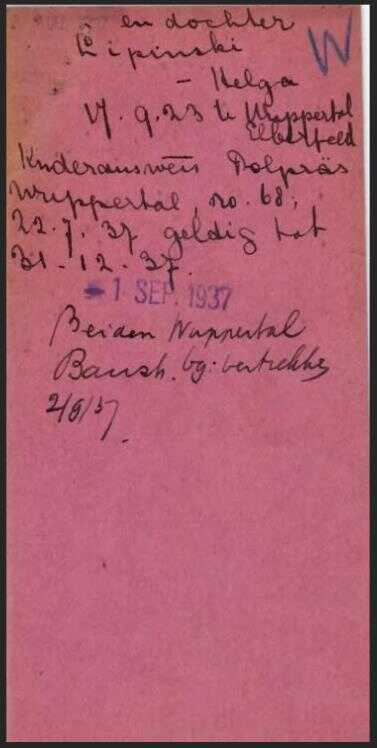 en dochter
Lipinski
W
- Helga
17.9.23 te Wuppertal
Elberfeld
Kinderausweis Polpräs
Wuppertal no. 68,
22.7.37 geldig tot
31-12-37.
1 SEP. 1937
Beiden Wuppertal
2/9/37